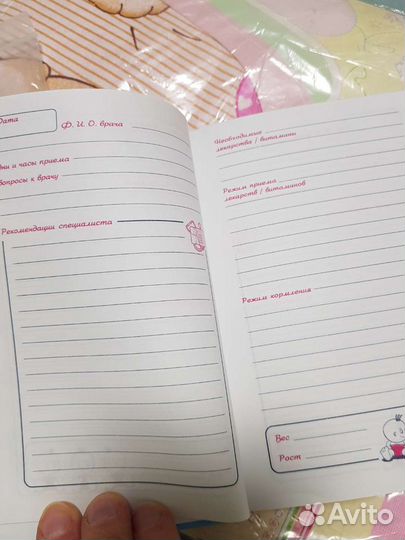 Дата
Ф. И. О. врача
дни и часы приема
вопросы к врачу
Рекомендации специалиста
Необходимые
лекарства / витамины
Режим приема
лекарств / витаминов
Режим кормления
Вес
Рост
Avito